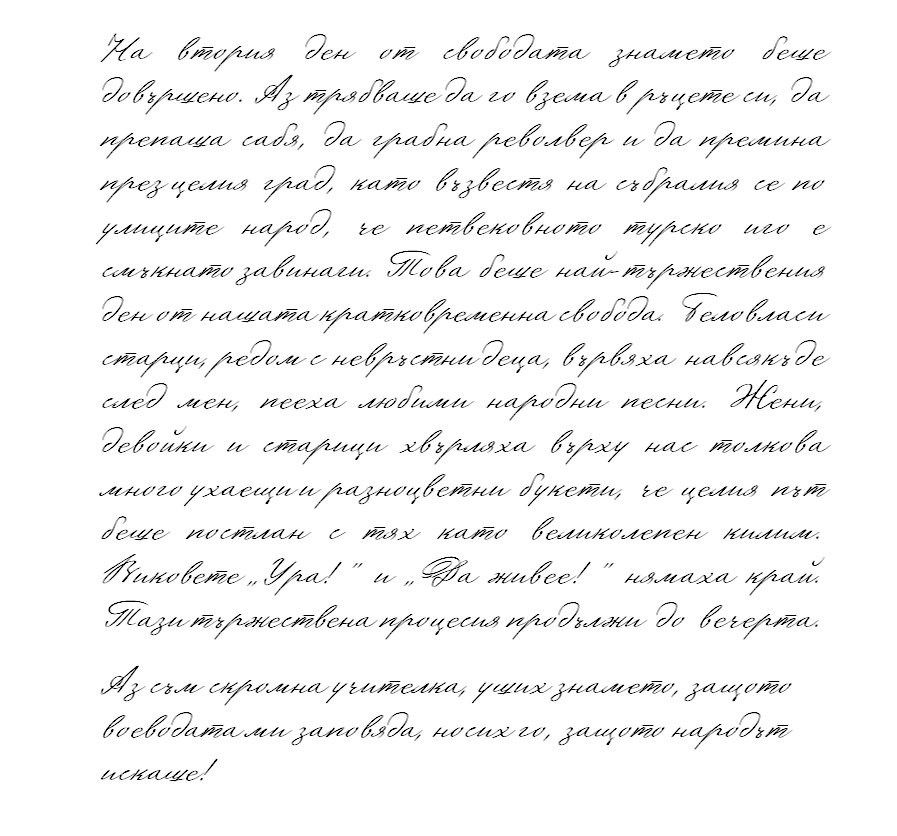 На втория ден от свободата знамето беше
довършено. Аз трябваше да го взема в ръцете си, да
препаша сабя, да грабна револвер и да премина
през целия град, като възвестя на събралия се по
улиците народ, че петвековното турско иго е
смъкнато завинаги. Това беше най-тържествения
ден от нашата кратковременна свобода. Беловласи
старци, редом с невръстни деца, вървяха навсякъде
след мен, пееха любими народни песни. Жени,
девойки и старици хвърляха върху нас толкова
много ухаещи и разноцветни букети, че целия път
беше постлан с тях като великолепен килим.
Виковете „Ура! ” и „Да живее! ” нямаха край.
Тази тържествена процесия продължи до вечерта.
Аз съм скромна учителка, уших знамето, защото
воеводата ми заповяда, носих го, защото народът
искаше!